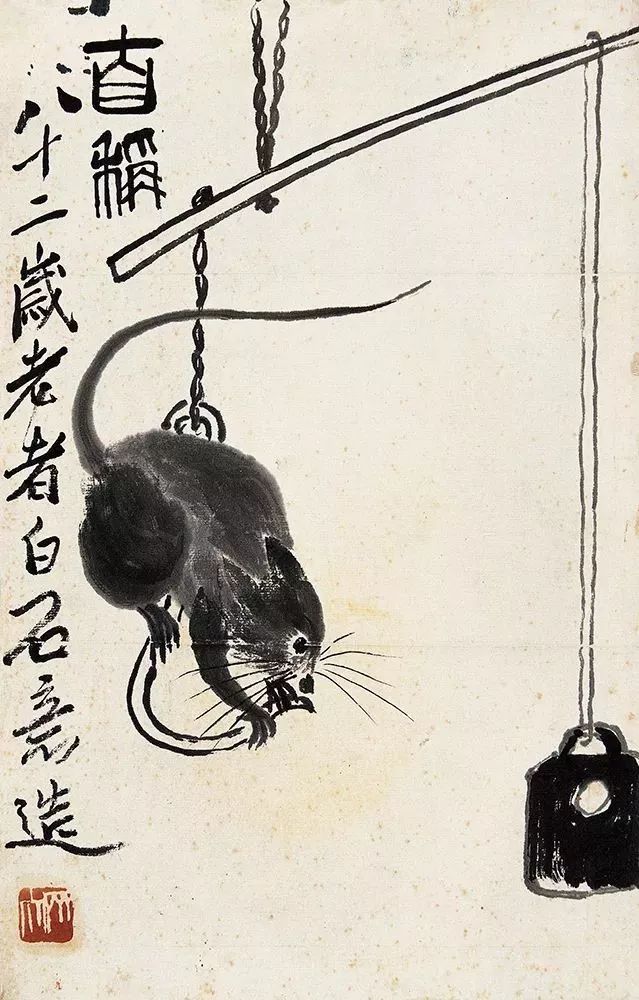 自稱
八十二歲老者白石意造